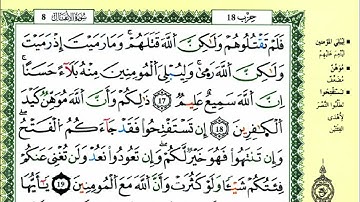 حزب 18
سُورَةُ الأَنفَالِ 8
فَلَمْ تَقْتُلُوهُمْ وَلَٰكِنَّ ٱللَّهَ قَتَلَهُمْ وَمَا رَمَيْتَ إِذْ رَمَيْتَ
وَلَٰكِنَّ ٱللَّهَ رَمَىٰ وَلِيُبْلِىَ ٱلْمُومِنِينَ مِنْهُ بَلَآءً حَسَناً
اِنَّ ٱللَّهَ سَمِيعٌ عَلِيمٌ 17 ذَٰلِكُمْ وَأَنَّ ٱللَّهَ مُوَهِّنٌ كَيْدَ
ٱلْكَٰفِرِينَ 18 إِن تَسْتَفْتِحُوا۟ فَقَدْ جَآءَكُمُ ٱلْفَتْحُ
وَإِن تَنتَهُوا۟ فَهُوَ خَيْرٌ لَّكُمْ وَإِن تَعُودُوا۟ نَعُدْ وَلَن تُغْنِىَ عَنكُمْ
فِئَتُكُمْ شَيْـًٔا وَلَوْ كَثُرَتْ وَأَنَّ ٱللَّهَ مَعَ ٱلْمُومِنِينَ 19 يَٰٓأَيُّهَا
لِيُبْلِيَ المُومِنِينَ
لِيُنْعِمَ عَلَيْهِمْ
مُوَهِّنٌ
مُضَعِّفٌ
تَسْتَفْتِحُوا
تَطْلُبُوا النَّصْرَ
لأَهْدَى